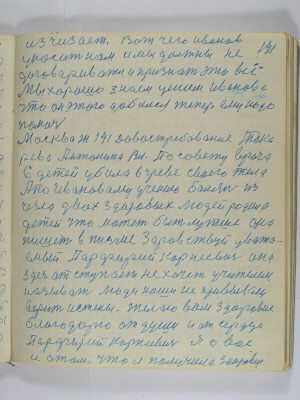 изчизает. Вот чего иванов
упосит нам имы должны не
договариватии признат это всё
Мы хорошо знаем учени иванова
что он этого добился тепер ему надо
помоч
Москва Ж 141 Довостребование Тока
рева Антонина Вл. По совету врача
6 детей убила вчреве своего тела
Апо ивановому учению балян из
чела двух здоровых людей родила
детей что может быт лучше она
пишет в письме Здравствуй уважа-
емый Парфирий Корнеевич она
здес отступает нехочет учителем
называт Люди наши не привыкли
верит истены. Желаю вам здоровие
благодарю отдуши и от сердце
Парфирий Корнеевич Я о вас
и отом, что я получила здоровие
141